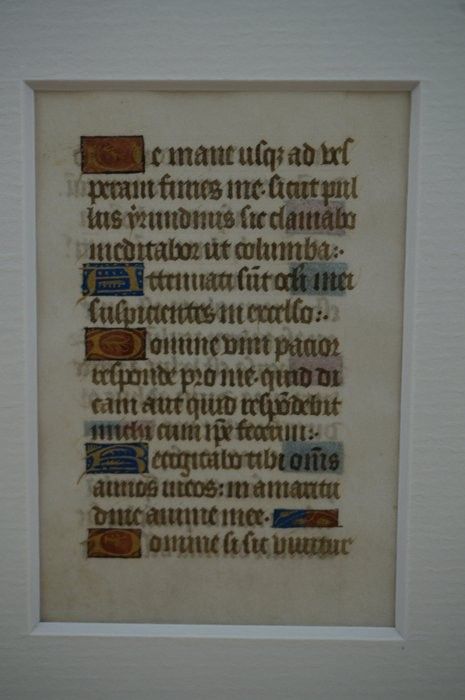 De mane usq; ad ves
peram finies me. sicut pul
lus yrundinis sic clamabo
meditabor ut columba:.
Attenuati sūt oc̄li mei
suspicientes in excelso:.
Domine vim pacior
responde pro me. quid di
cam aut quid respōdebit
michi cum ip̄e fecerim:.
Recogitabo tibi om̄s
annos meos: in amaritu
dine anime mee.
Domine si sic vivitur